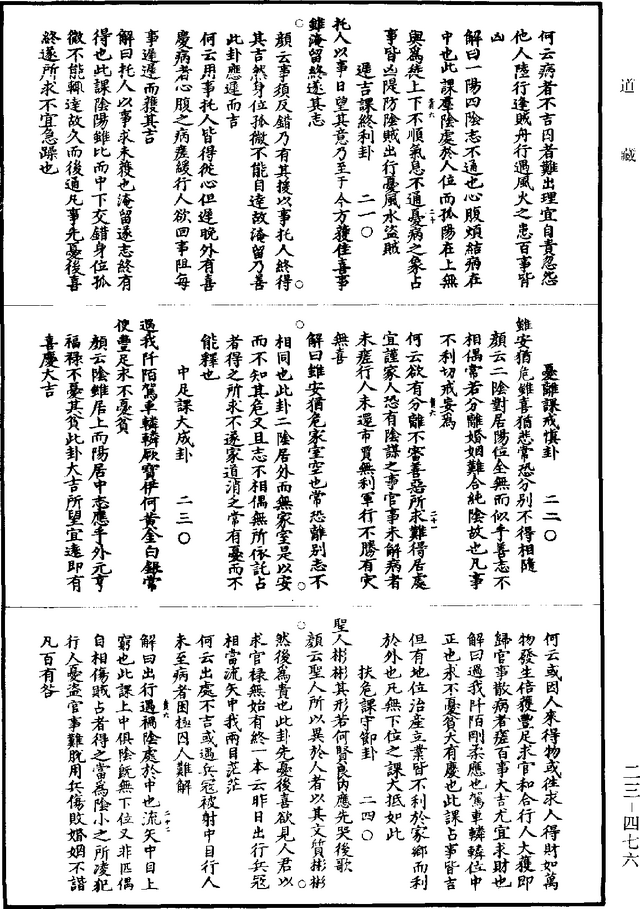 道藏
何云病者不吉囚者難出理宜自責忽怨
他人陸行逢賊舟行遇風火之患百事皆
凶
解曰一陽四陰志不通也心腹煩結病在
中也此課羣陰處於人位而孤陽在上無
與爲緣上下不順氣息不通憂病之象占
事皆凶隄防陰賊出行憂風水盜賊
遲吉課終利卦　二一〇
托人以事日望其意乃至于今方獲佳喜事
雖淹留終遂其志
顔云事須反錯乃有其援以事托人終得
其吉然身位孤微不能自達故淹留乃善
此卦應遲而吉
何云用事托人皆得從心但遲晚外有喜
慶病者心腹之病瘥緩行人欲回事阻每
事遲遲而獲其吉
解曰托人以事求未獲也淹留遂志終有
得也此課陰陽雖比而中下交錯身位孤
微不能輒達故久而後通凡事先憂後喜
終遂所求不宜急躁也
憂離課戒慎卦　二二〇
雖安猶危雖喜猶悲常恐分別不得相隨
顔云二陰對居陽位全無而似乎善志不
相偶常若分離婚姻難合純陰故也凡事
不利切戒妄爲
何云欲有分離不審善惡所求難得居處
宜謹家人恐有陰謀之事官事未解病者
未瘥行人未還市賈無利軍行不勝有灾
無喜
解曰雖安猶危家室空也常恐離別志不
相同也此卦二陰居外而無家室是以安
而不知其危又且志不相偶無所依託占
者得之所求不遂家道消之常有憂而不
能釋也
中足課大成卦　二三〇
遇我阡陌駕車轔轔厥寶伊何黃金白銀常
使豐足求不憂貧
顔云陰雖居上而陽居中志應乎外元亨
福祿不憂其貧此卦大吉所望宜遠即有
喜慶大吉
何云或因人來得物或往求人得財如萬
物發生倍獲豐足求官和合行人大獲即
歸官事散病者瘥百事大吉尤宜求財也
解曰遇我阡陌剛柔應也駕車轔轔位中
正也求不憂貧大有慶也此課占事皆吉
但有地位治産立業皆不利於家鄉而利
於外也凡無下位之課大抵如此
扶危課守節卦　二四〇
聖人彬彬其形若何賢良內應先哭後歌
顔云聖人所以異於人者以其文質彬彬
然後爲貴也此卦先憂後喜欲見人君以
求官祿無始有終一本云昨日出行兵寇
相當流矢中我兩目茫茫
何云出處不吉或遇兵寇被射中目行人
未至病者困極囚人難解
解曰出行遇禍陰處於中也流矢中目上
窮也此課上中俱陰旣無下位又非匹偶
自相傷賊占者得之當爲陰小之所凌犯
行人憂盜官事難脫用兵傷敗婚姻不諧
凡百有咎
二三－四七六